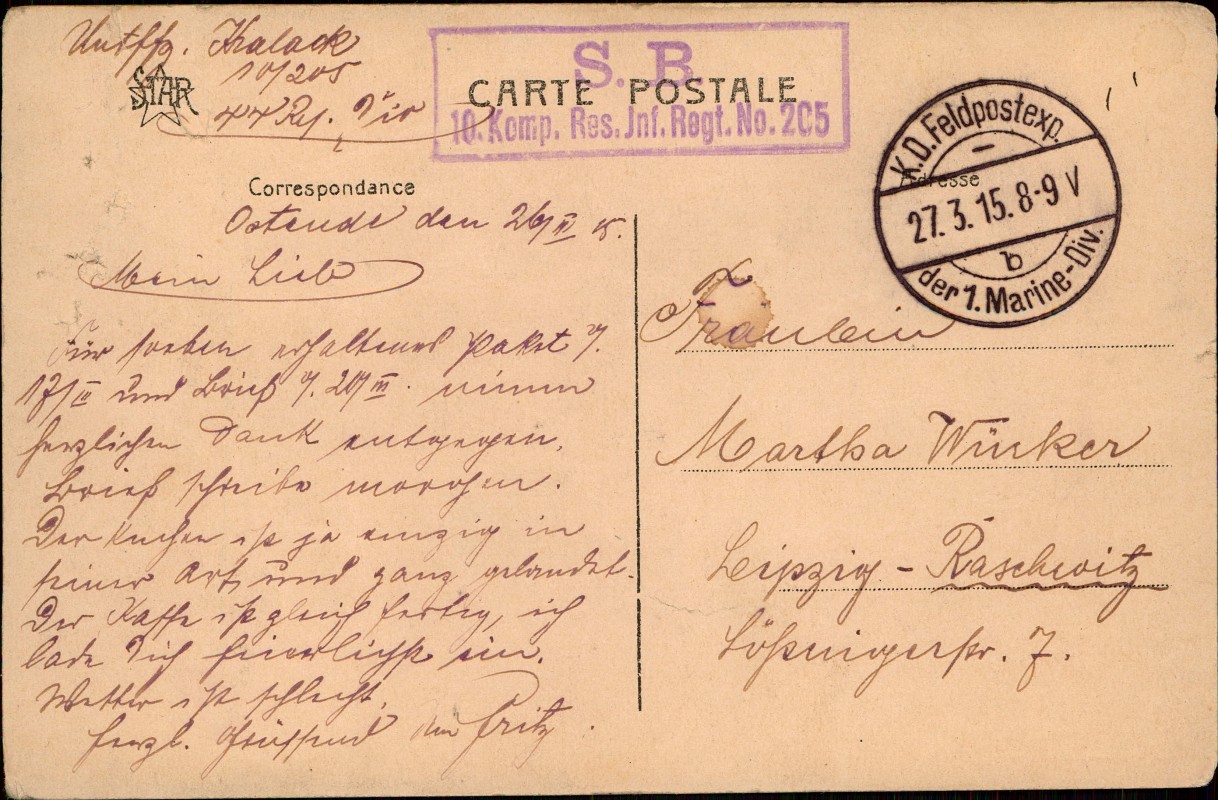 Untffz. Kralack
10/205
44 Res. Div
STAR
S. B.
CARTE POSTALE
10. Komp. Res. Inf. Regt. No. 205
K.D. Feldpostexp.
27. 3. 15. 8-9 V
b
der 1. Marine-Div.
Correspondance
Adresse
Ostende den 26/III 15.
Mein Lieb
Für soeben erhaltenes Paket v.
17/III und Brief v. 20/III. nimm
herzlichen Dank entgegen.
Brief schreibe morgen.
Der Kuchen ist ja einzig in
seiner Art, und ganz gelandet.
Der Kaffe ist gleich fertig, ich
lade Dich feierlichst ein.
Wetter ist schlecht.
Herzl. Grüssend Dein Fritz.
Fräulein
Martha Wünker
Leipzig - Raschwitz
Lößnigerstr. 7.